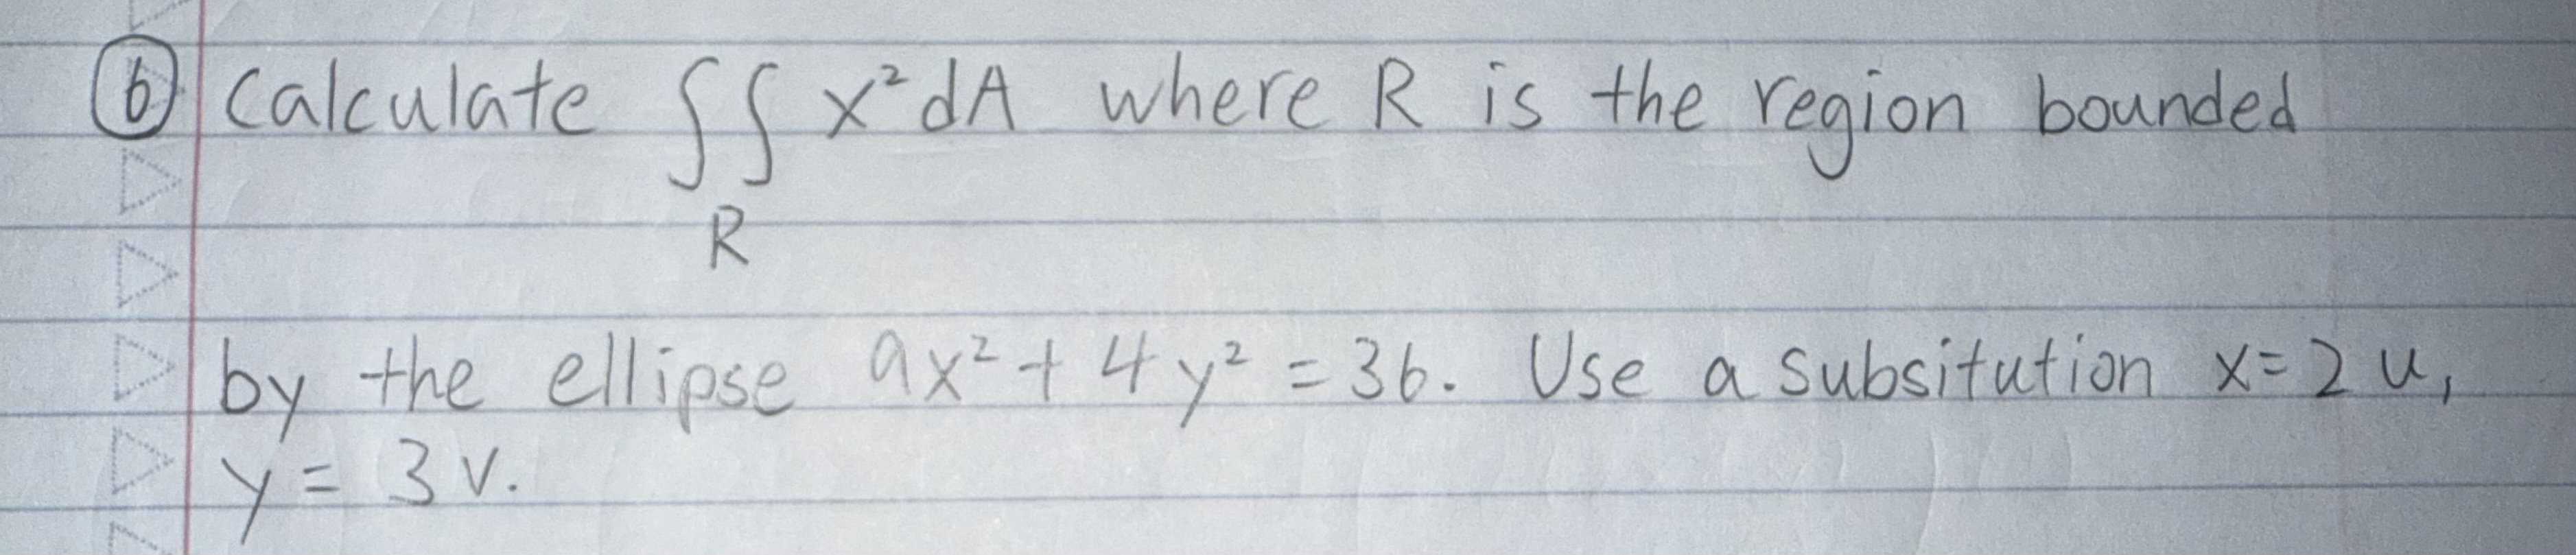 ⑥ Calculate ∫∫ x² dA where R is the region bounded
R
by the ellipse 9x² + 4y² = 36. Use a subsitution x = 2u,
y = 3v.